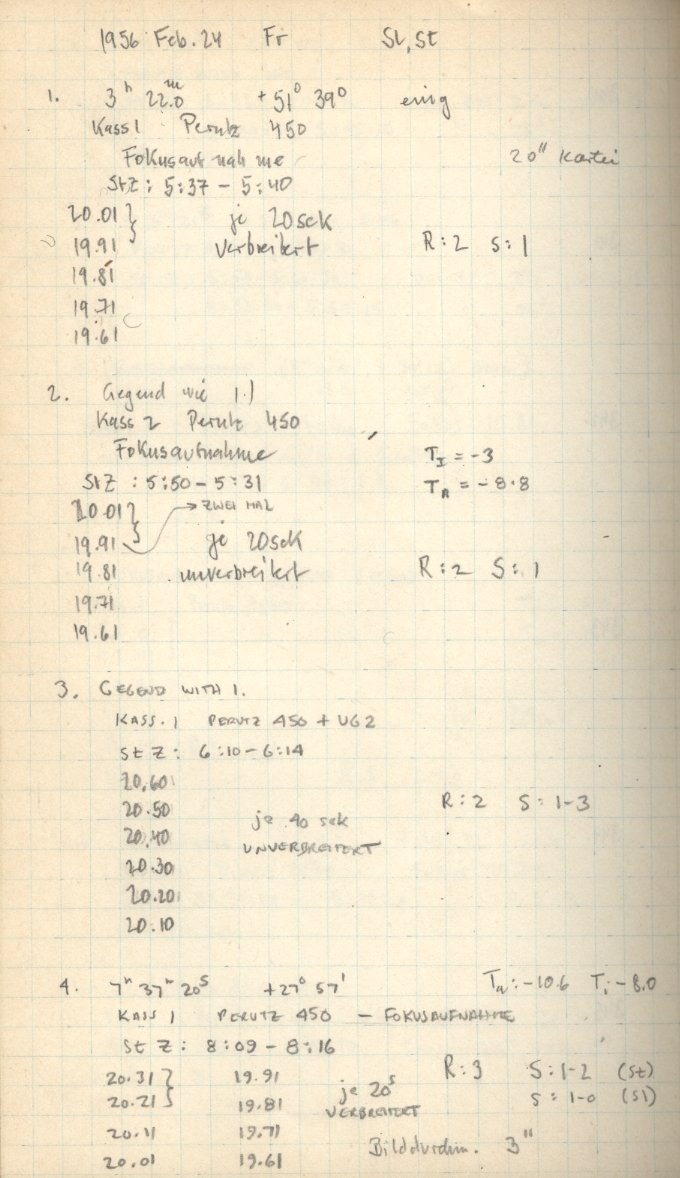 1956 Feb. 24 Fr Sl, St
1. 3h 22.0m +51° 39°
Kass 1 Perutz 450
Fokusaufnahme
20" Kartei
StZ: 5:37 - 5:40
20.01 } je 20sek
19.91 } verbreitert R: 2 S: 1
19.81
19.71
19.61
2. Gegend wie 1.)
Kass 2 Perutz 450
Fokusaufnahme TI = -3
StZ : 5:50 - 5:31 TA = -8.8
20.01 } → ZWEI MAL
19.91 } je 20sek
19.81 unverbreitert R: 2 S: 1
19.71
19.61
3. GEGEND WITH 1.
KASS. 1 PERUTZ 450 + UG2
St Z: 6:10 - 6:14
20.60
20.50 R: 2 S: 1-3
20.40 je 40 sek
UNVERBREITERT
20.30
20.20
20.10
4. 7h 37m 20s +27° 57' Ta: -10.6 Ti: -8.0
KASS 1 PERUTZ 450 - FOKUSAUFNAHME
St Z: 8:09 - 8:16
20.31 } 19.91 je 20s R: 3 S: 1-2 (St)
20.21 } 19.81 VERBREITERT S: 1-0 (Sl)
20.11 19.71
20.01 19.61 Bilddurchm. 3"